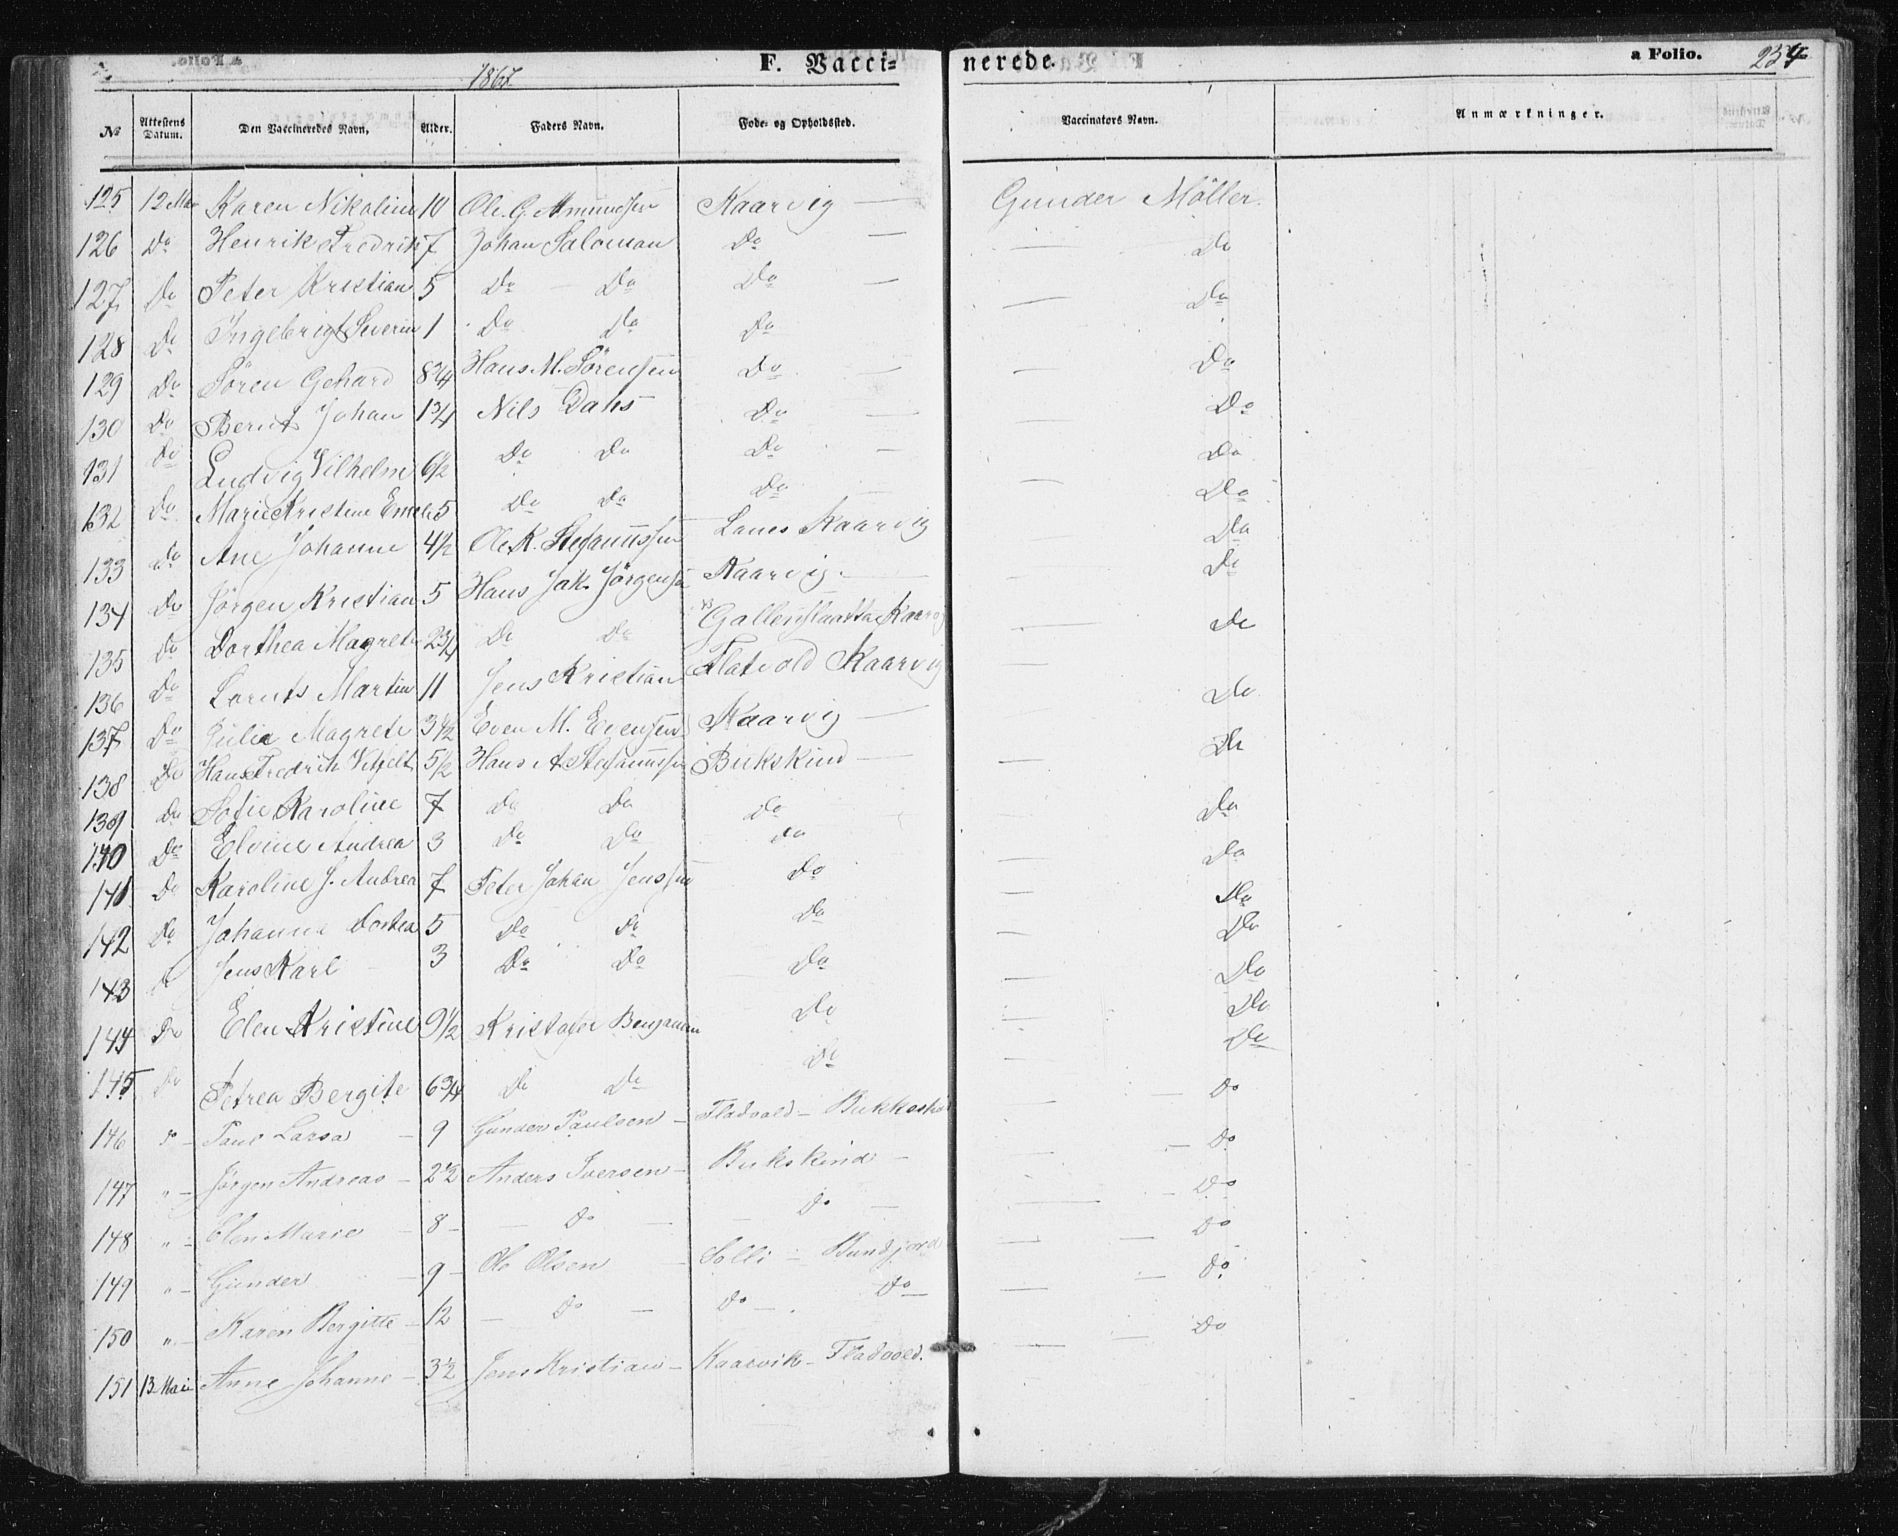 1867.
F. Vacci-nerede. a Folio. 254
№ Attestens Datum. Den Vaccineredes Navn. Alder. Faders Navn. Føde- og Opholdssted. Vaccinators Navn. Anmærkninger.
125 12 Mai Karen Nikoline 10 Ole G. Amundsen Kaarvig — Gunder Möller.
126 Do Henrik Fredrik 7 Johan Saloman Do — — Do
127 Do Peter Kristian 5 Do Do Do — — Do
128 Do Ingebrigt Severin 1 Do Do Do
129 Do Sören Gehard 8 3/4 Hans M. Sörensen Do — — Do
130 Do Bernt Johan 1 3/4 Nils Dahs Do — — Do
131 Do Ludvig Vilhelm 6 1/2 Do Do Do — Do
132 Do Marie Kristine Emelie 5 Do Do Do — Do
133 Do Ane Johanne 4 1/2 Ole K. Stefanussen Lanes Kaarvig Do
134 Do Jörgen Kristian 5 Hans Jak. Jörgensen Kaarvig — Do
135 Do Dorthea Magrete 2 3/4 Do Do Kaarvig — Do
136 Do Lornts Martin 11 Jens Kristian Flatvold Kaarvig —
137 Do Julie Magrete 3 1/2 Even M. Evensen Kaarvig — Do
138 Do Hans Fredrik 5 1/2 Hans A Stefanussen Bukskind — Do
139 Do Sofie Karoline 7 Do Do Do Do
140 Do Elvine Andrea 3 Do Do Do — Do
141 Do Karoline J. Andrea 7 Peter Johan Jenssen Do — Do
142 Do Johanne Dortea 5 Do Do Do — Do
143 Do Jens Karl 3 Do Do Do — Do
144 Do Elen Kristine 9 1/2 Kristofer Benjamin Do — Do
145 Do Petrea Bergite 6 3/4 Do Do Do — Do
146 Do – Paul Larsa – 9 Gunder Paulsen – Fladvold – Bukkeskin — Do
147 „ – Jörgen Andreas – 2 1/2 Anders Iversen – Bukskind – — Do
148 „ – Elen Marie – 8 – — Do — — Do — — Do
149 „ – Gunder – 9 – Ole Olsen – Solli – Bundjord — Do
150 „ – Karen Bergitte – 12 — Do — Do – Do — Do
151 13 Mai Anne Johanne – 3 1/2 Jens Kristian – Kaarvik – Fladvold. — Do